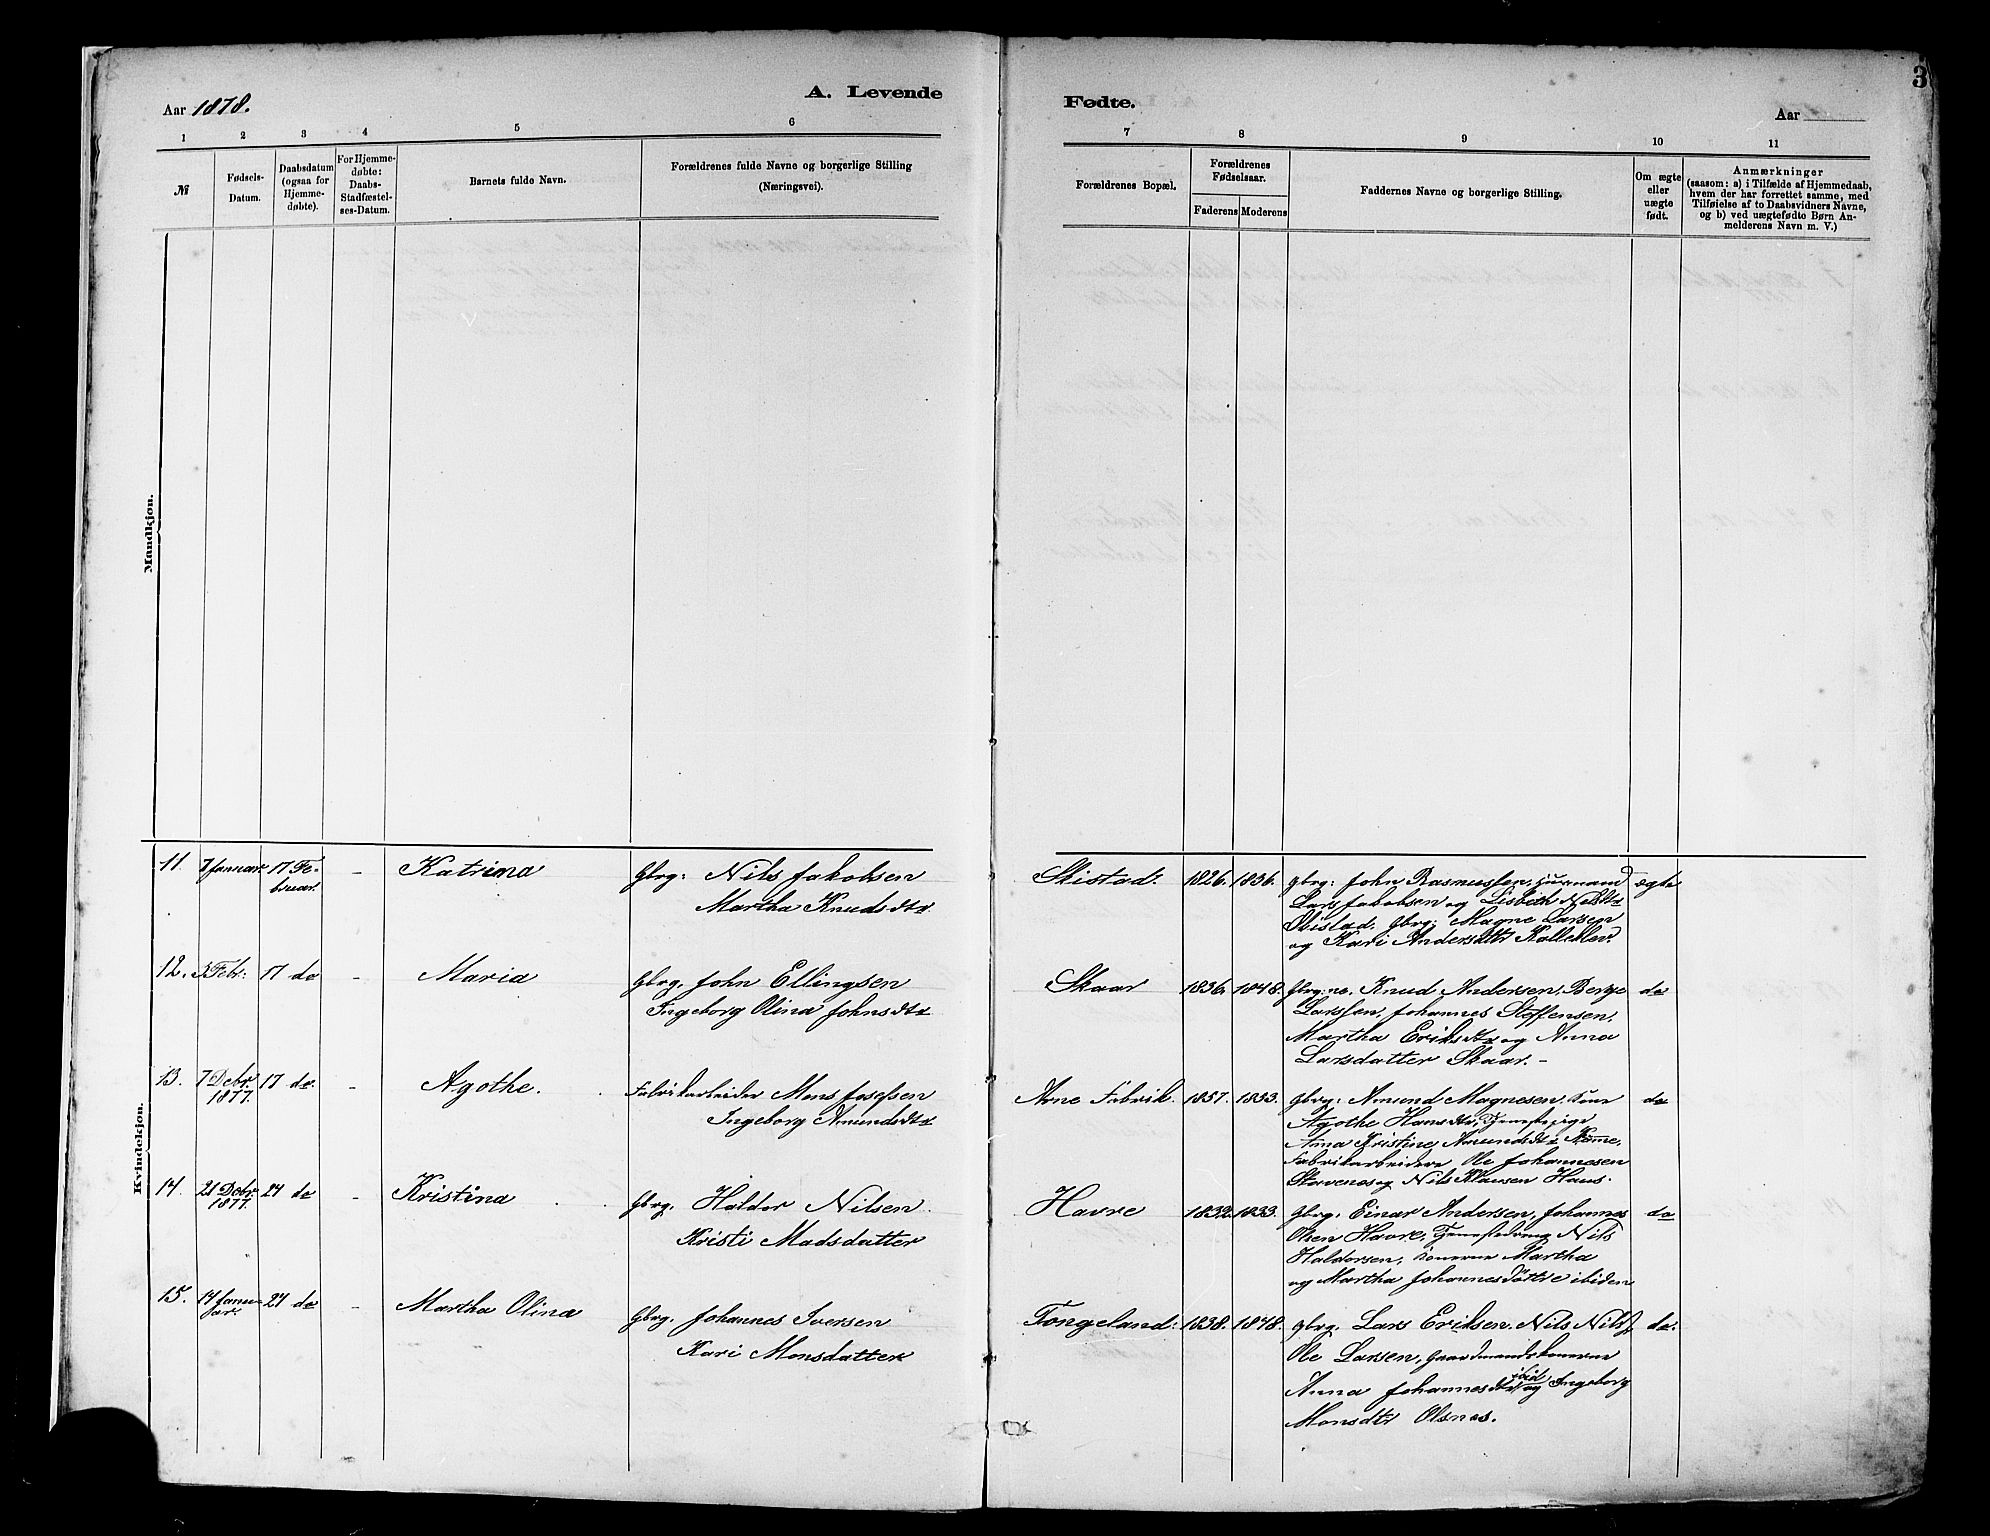 3
Aar 1878.
A. Levende
1 2 3 4 5 6
№
Fødsels-
Datum.
Daabsdatum
(ogsaa for
Hjemme-
døbte).
For Hjemme-
døbte:
Daabs-
Stadfæstel-
ses-Datum.
Barnets fulde Navn.
Forældrenes fulde Navne og borgerlige Stilling
(Næringsvei).
Mandkjøn.
Kvindekjøn.
11. 7 Januar. 17 Fe-
bruar. - Katrina Gbrg: Nils Jakobsen
Martha Knudsdtr
12. 3 Febr: 17 do - Maria Gbrg. John Ellingsen
Ingeborg Olina Johnsdtr
13. 7 Debr 17 do - Agothe. Fabrikarbeider Mons Josefsen
1877. Ingeborg Amundsdtr
14. 21 Debr 24 do - Kristina Gbrg. Haldor Nilsen.
1877. Kristi Madsdatter
15. 14 Janu- 24 do - Martha Olina Gbrg. Johannes Iversen
ar. Kari Monsdatter
Fødte.
Aar
7 8 9 10 11
Forældrenes Bopæl.
Forældrenes
Fødselsaar.
Faderens Moderens
Faddernes Navne og borgerlige Stilling.
Om ægte
eller
uægte
født.
Anmærkninger
(saasom: a) i Tilfælde af Hjemmedaab,
hvem der har forrettet samme, med
Tilføielse af to Daabsvidners Navne,
og b) ved uægtefødte Børn An-
melderens Navn m. V.)
Skistad. 1826. 1836. Gbrg: John Rasmussen, ægte
Lars Jakobsen og Lisbeth
Gbrg: Magne Larsen
og Kari Andersdtr Kalleklev.
Skaar 1836. 1848. Gbrg:ne. Knud Andersen, Berge do
Larssen, Johannes Steffensen,
Martha Eriksdtr og Anna
Larsdatter Skaar. -
Arne Fabrik. 1857. 1833. Gbrg: Amund Magnesen, do
Agothe Hansdtr, Tjenestepige
Anna Kristine Amundsdtr
Fabrikarbeidere Ole Johannesen
og Nils Klausen Haus.
Havre 1832. 1833. Gbrg. Einar Andersen, Johannes do
Olsen Havre, Tjenestedreng Nils
Haldorsen, konerne Martha
og Martha Johannesdøttre ibiden
Tongeland: 1838. 1848. Gbrg. Lars Eriksen, Nils Nilss, do.
Ole Larsen, Gaardmandskonerne
Anna Johannesdtr ibid og Ingeborg
Monsdtr Olsnes.